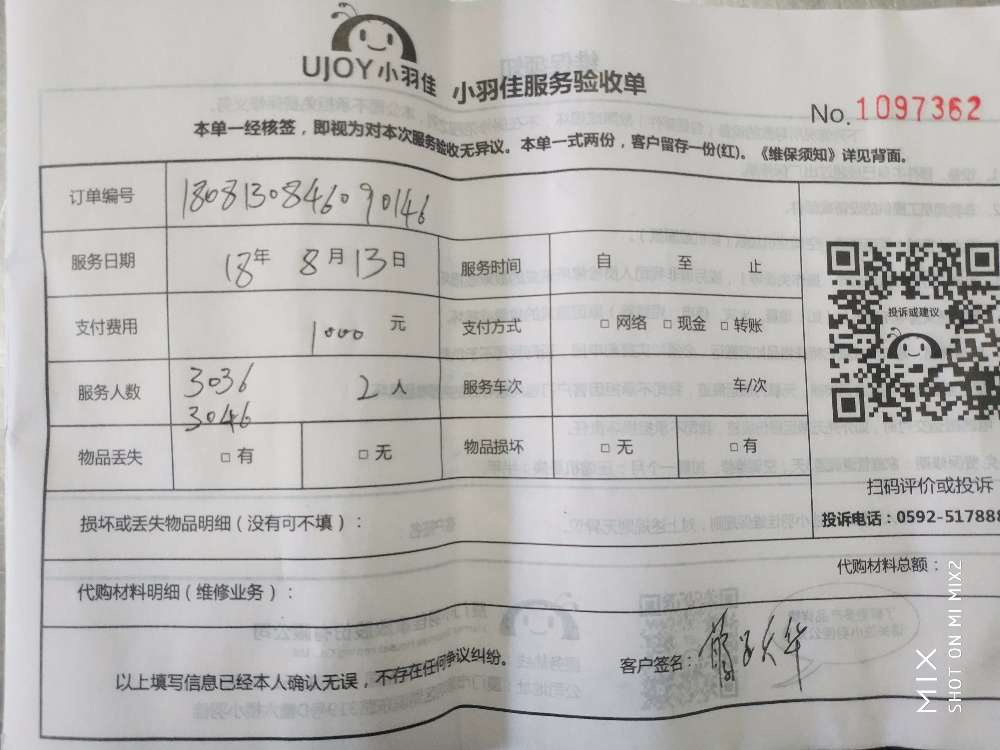 UJOY小羽佳
小羽佳服务验收单
No. 1097362
本单一经核签，即视为对本次服务验收无异议。本单一式两份，客户留存一份(红)。《维保须知》详见背面。
订单编号 1808130846090146
服务日期 18年 8月13日 服务时间 自 至 止
支付费用 1000 元 支付方式 □ 网络 □ 现金 □ 转账
服务人数 3036 2人 服务车次 车/次
3046
物品丢失 □ 有 □ 无 物品损坏 □ 无 □ 有
投诉或建议
扫码评价或投诉
投诉电话：0592-517888
损坏或丢失物品明细（没有可不填）：
代购材料明细（维修业务）：
代购材料总额：
以上填写信息已经本人确认无误，不存在任何争议纠纷。
客户签名：
MIX
SHOT ON MI MIX2